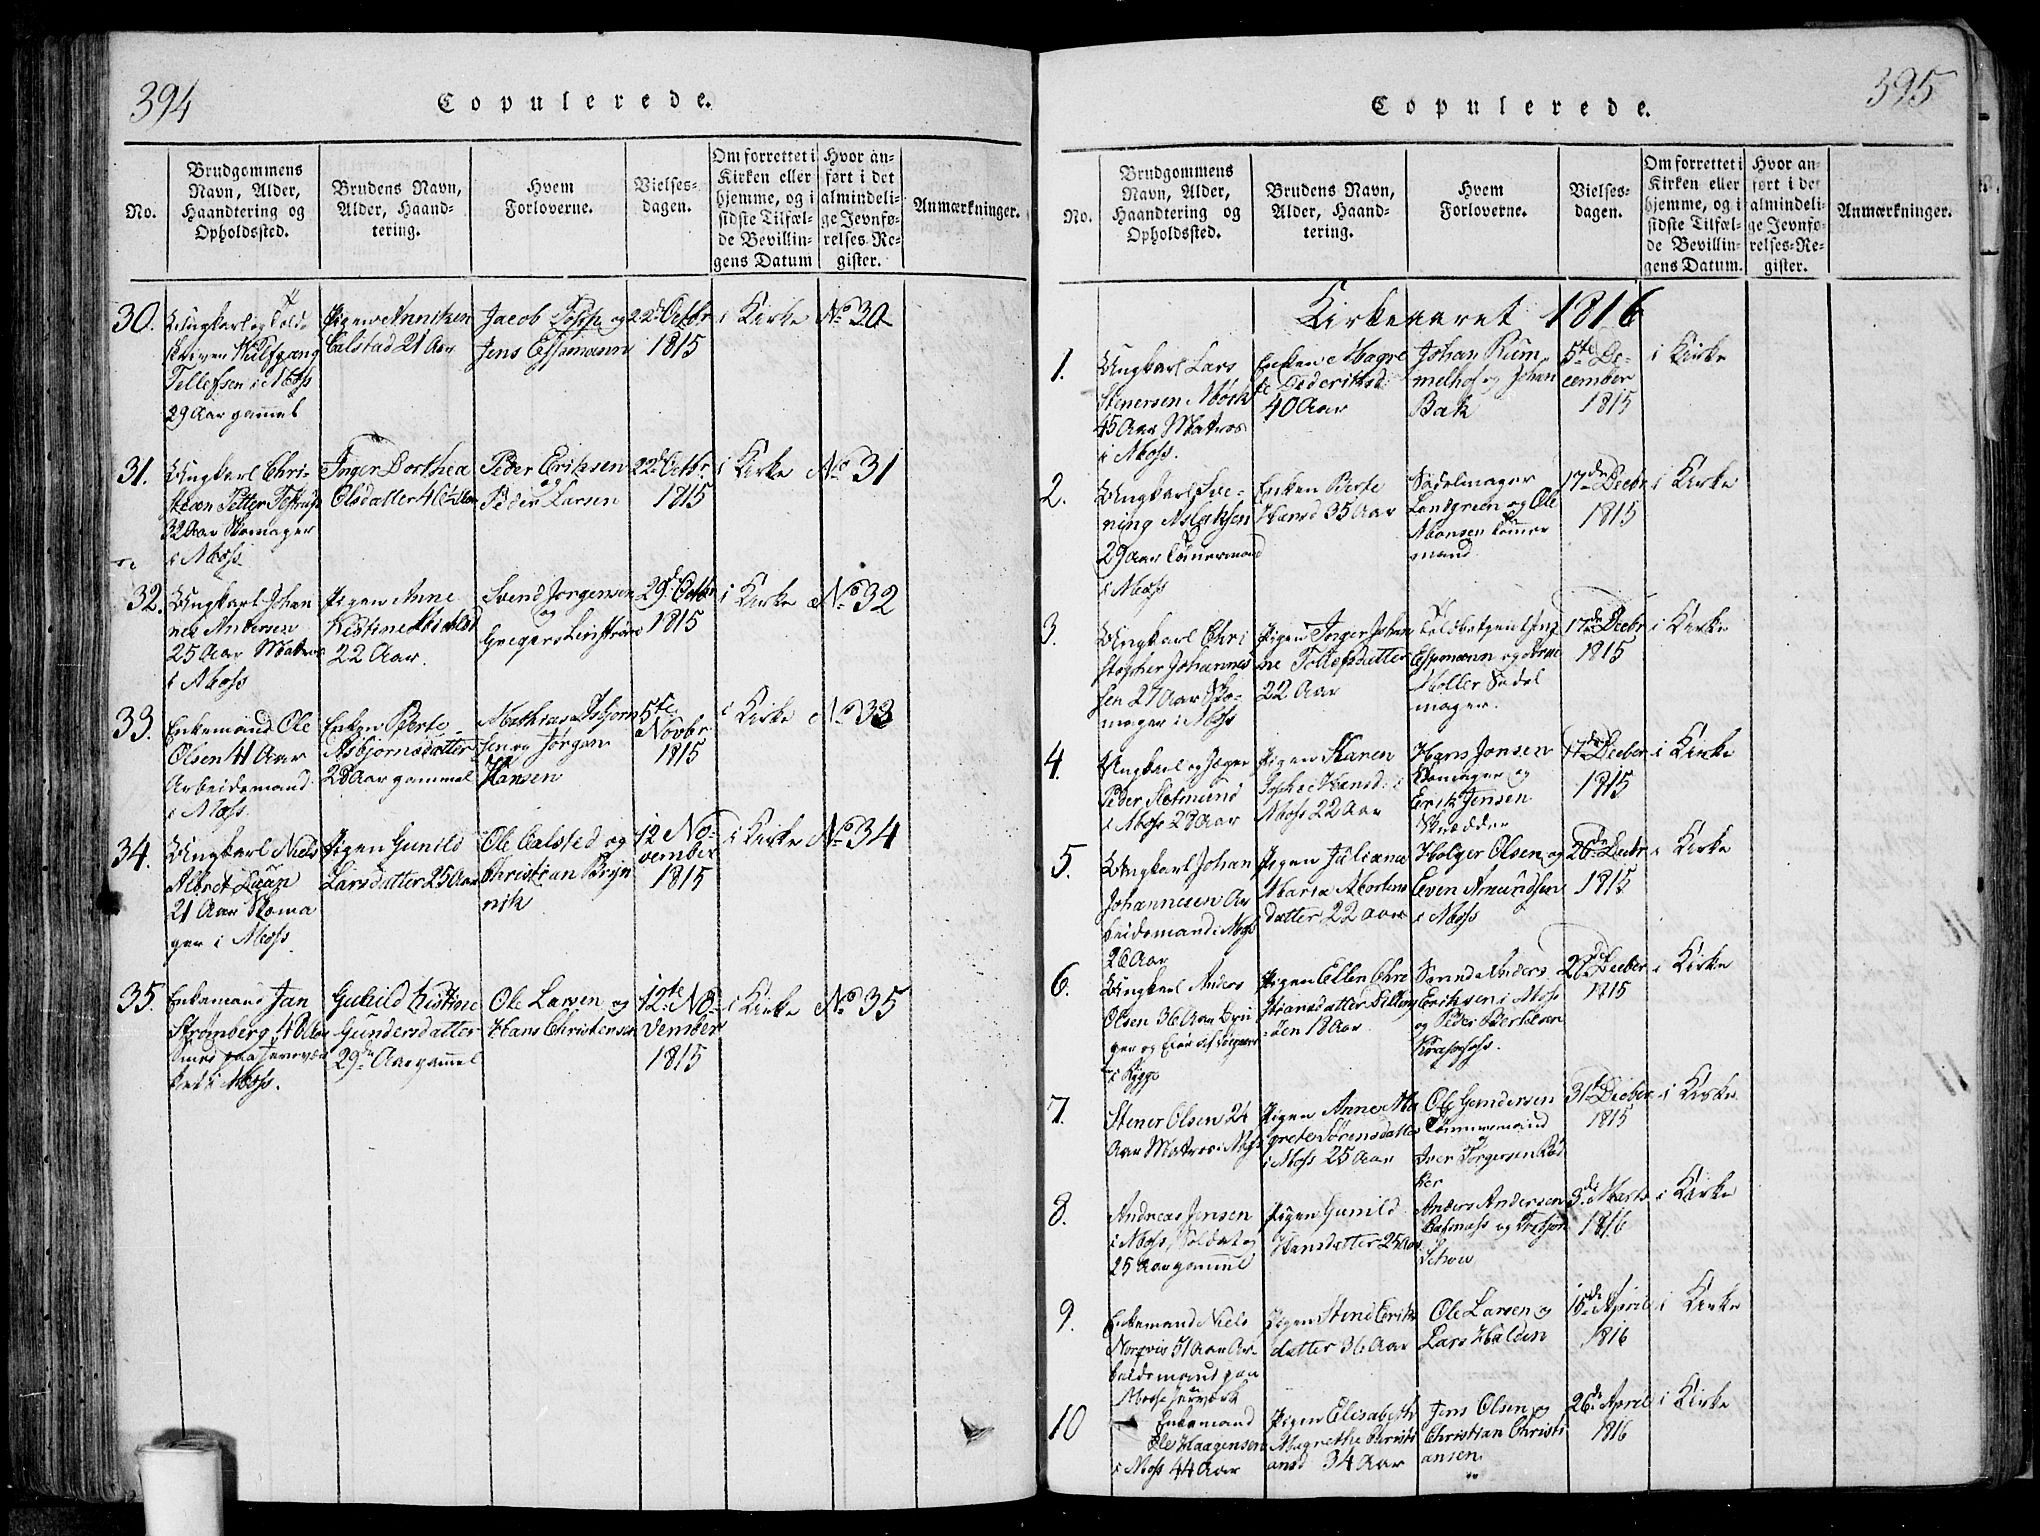 394
Copulerede.
No.
Brudgommens
Navn, Alder,
Haandtering og
Opholdssted.
Brudens Navn,
Alder, Haand-
tering.
Hvem
Forloverne.
Vielses-
dagen.
Om forrettet i
Kirken eller
hjemme, og i
sidste Tilfæl-
de Bevillin-
gens Datum
Hvor an-
ført i det
almindeli-
ge Jevnfø-
relses-Re-
gister.
Anmærkninger.
30.
Ungkarl og Told-
skriver
Tellefsen i Moss
29 Aar gammel
Pigen Anniken
Calstad 21 Aar
Jacob og
Jens Essmann
22d Octbr
1815
i Kirke
No 30
31.
Ungkarl Chri-
stian Petter
32 Aar Skomager
i Moss
Inger Dorthea
Olsdatter
Peder Eriksen
og
Peder Larsen
22d Octbr.
1815
i Kirke
No 31
32.
Ungkarl Johan
nes Andersen
25 Aar Matros
i Moss
Pigen Anne
Kistine
22 Aar.
Svend Jørgensen
og
Gregers
29d Octbr
1815
i Kirke
No 32
33.
Enkemand Ole
Olsen 41 Aar
Arbeidsmand
i Moss.
Enken Berte
Asbjørnsdatter
28 Aar gammel
Mathias Asbjørn
sen og Jørgen
Hansen
5te
Novbr
1815
i Kirke
No 33
34.
Ungkarl Niels
Albret
21 Aar Skoma
ger i Moss.
Pigen Gunild
Larsdatter 25 Aar
Ole Calsted og
Christian
12 No-
vember
1815
i Kirke
No 34
35.
Enkemand Jan
Strømberg 40 Aar
Smed paa Jernvær
ket i Moss.
Guhild Kistine
Gundersdatter
29 Aar gammel
Ole Larsen og
Hans Christensen
12te No-
vember
1815
i Kirke
No 35
395
Copulerede.
No.
Brudgommens
Navn, Alder,
Haandtering og
Opholdssted.
Brudens Navn,
Alder, Haand-
tering.
Hvem
Forloverne.
Vielses-
dagen.
Om forrettet i
Kirken eller
hjemme, og i
sidste Tilfæl-
de Bevillin-
gens Datum.
Hvor an-
ført i det
almindeli-
ge Jevnfø-
relses-Re-
gister.
Anmærkninger.
Kirkeaaret 1816
1.
Ungkarl Lars
Stenersen
45 Aar Matros
i Moss.
Enken Magre
te Dideriksd
40 Aar
Johan Rüm
melhof og Johan
Bak
5te De-
cember
1815
i Kirke
2.
Ungkarl Sve-
ning Aslaksen
29 Aar Tømermand
i Moss
Enken Berte
Hansd 35 Aar
Sadelmager
Landgreen og Ole
Monsen Tømmer
mand.
17de Decbr
1815
i Kirke
3.
Ungkarl Chri
stopher Johannes
sen 27 Aar Sko-
mager i Moss
Pigen Inger Johan
ne Tollefsdatter
22 Aar
Toldbetjent Jens
Essmann og Arne
Møller Sadel
mager.
17de Decbr
1815
i Kirke
4.
Ungkarl og Jæger
Peder
i Moss 28 Aar
Pigen Karen
Sophie Hansd: i
Moss 22 Aar
Hans Jonsen
Skomager og
Erik Jensen
Skrædder
17de Decbr
1815
i Kirke
5.
Ungkarl Johan
Johannesen Ar
beidsmand i Moss
26 Aar
Pigen Juliana
Maria Mortens
datter 22 Aar
Holger Olsen og
Even Amundsen
i Moss
26de Decbr
1815
i Kirke
6.
Ungkarl Anders
Olsen 36 Aar Bru
ger og Eier af
i Rygge
Pigen Ellen Chri
stiansdatter
18 Aar
Anders
Eriksen i Moss
og Peder
27de Decbr
1815
i Kirke
7.
Stener Olsen 24
Aar Matros i Moss
Pigen Anne Ma
grete Sørensdatter
i Moss 25 Aar
Ole Gundersen
Tømmermand
og
Iver Torgersen Bød
ker
31te Decbr
1815
i Kirke
8.
Andreas Jensen
i Moss, Soldat og
25 Aar gammel
Pigen Gunild
Hansdatter 25 Aar
Anders Andersen
og
Schou
3de Marts
1816
i Kirke
9.
Enkemand Niels
31 Aar Ar-
beidsmand paa
Mosse Jernværk
Pigen Erik
datter 36 Aar
Ole Larsen og
Lars Halden
15de April
1816
i Kirke
10
Enkemand
Ole Haagensen
i Moss 44 Aar
Pigen Elisabeth
Magrethe Christi
ansd 34 Aar
Jens Olsen og
Christian Christi
ansen
26de April
1816
i Kirke